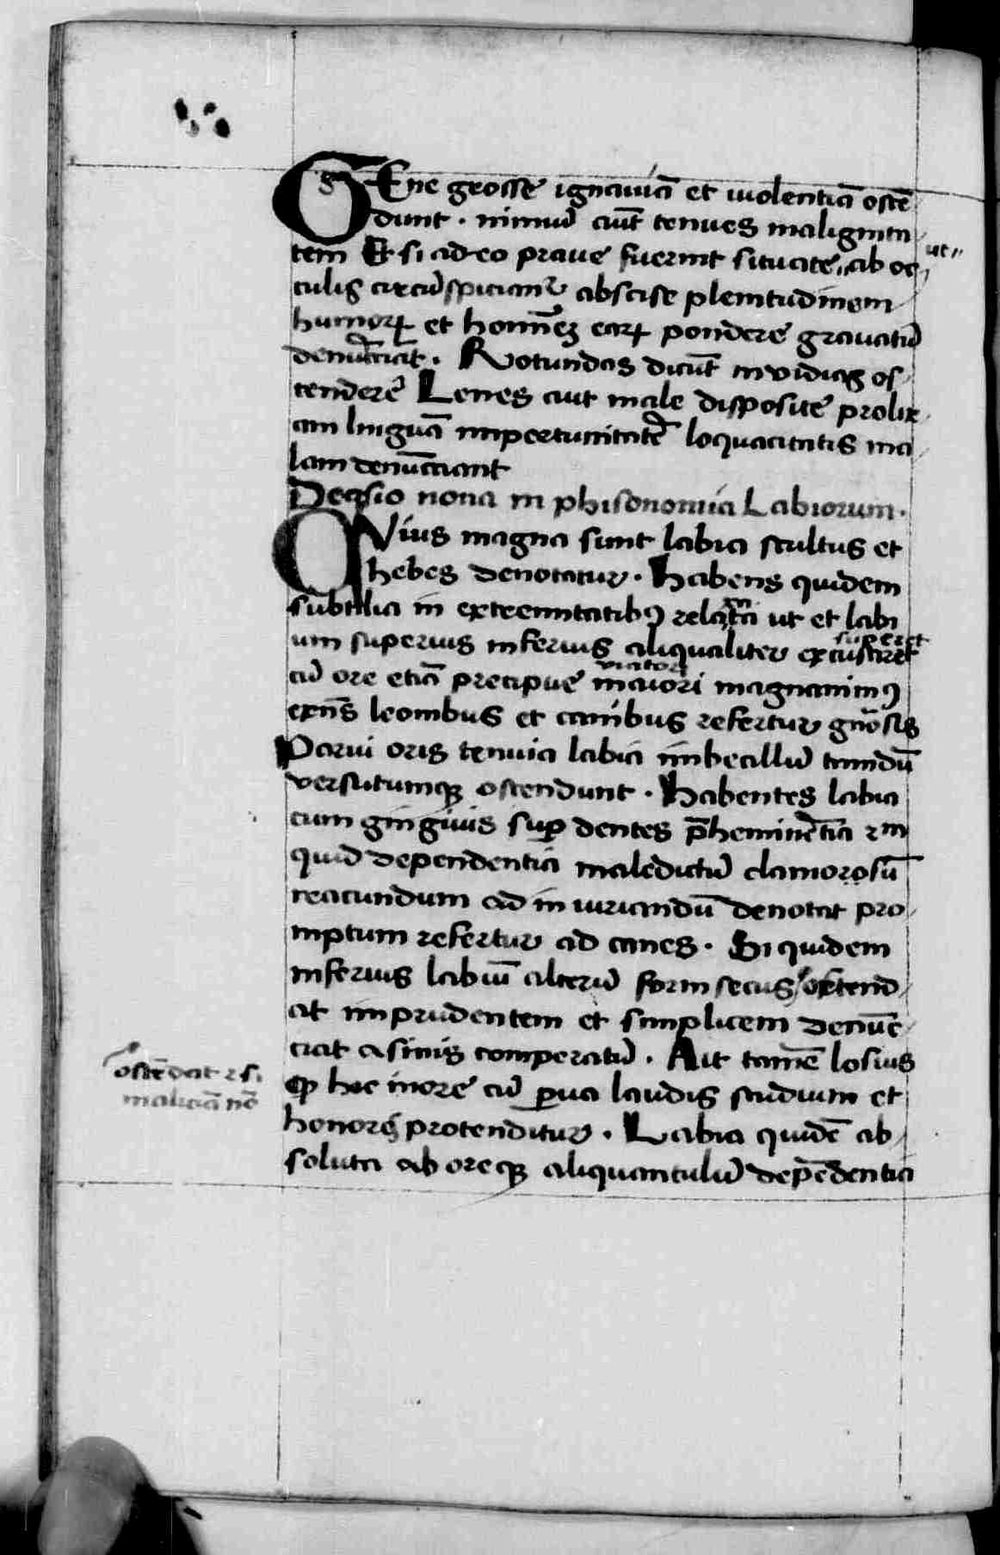 GEne grosse ignauiā et uiolentiā ostē
dunt . nimiū aūt tenues malignita
tem Et si adeo praue fuerint situate ut ab oc
culis circūspiciant᷑ abscise plenitudinem
humorꝝ et hominēꝫ earꝝ pondere grauatū
denūciat . Rotundas dicūt inuidias os
tendere Lenes aut male disposite prolix
am linguā importunitatē loquacitatis ma
lam denūciant
Decisio nona in phisonomia Labiorum .
CVius magna sunt labia stultus et
hebes denotatur . Habens quidem
subtilia in extremitatibꝰ relaxata ut et labi
um superius inferius aliqualiter superet
cū ore etiā precipue maiori magnanimꝰ
leonibus et canibus refertur
Parui oris tenuia labia imbecillū timidū
versutumqꝫ ostendunt . Habentes labia
cum gingiuis suꝑ dentes p̄heminētia
quid dependentia maledictū clamorosū
reacundum ad iniuriandū denotat pro
mptum refertur ad canes . Si quidem
inferius labiū alteriū forinsecus ostend
at imprudentem et simplicem denūc
ciat asinis comperatū . Ait tamē losius
ꝙ hec in ore cū ꝑua laudis studium et
honores protenditur . Labia quidē ab
soluta ab ore qꝫ aliquantulū depēdentia
ostēdat
maliciā nō